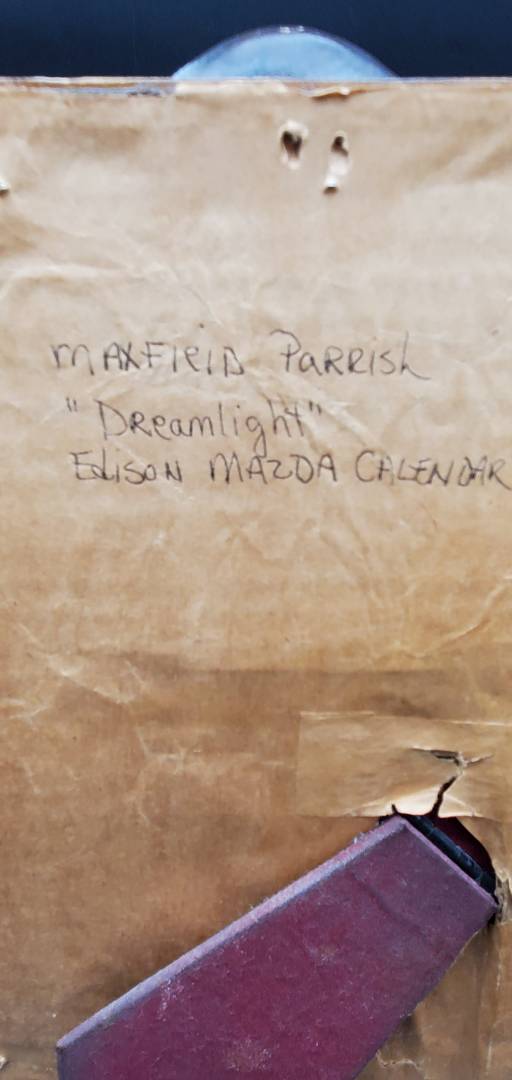 MAXFIELD PARRISH
"Dreamlight"
EDISON MAZDA CALENDAR